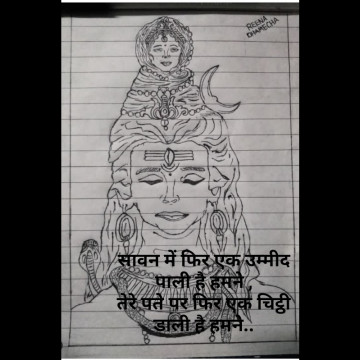 REENA
DHAMECHA
सावन में फिर एक उम्मीद
पाली है हमने ,
तेरे पते पर फिर एक चिट्ठी
डाली है हमने..